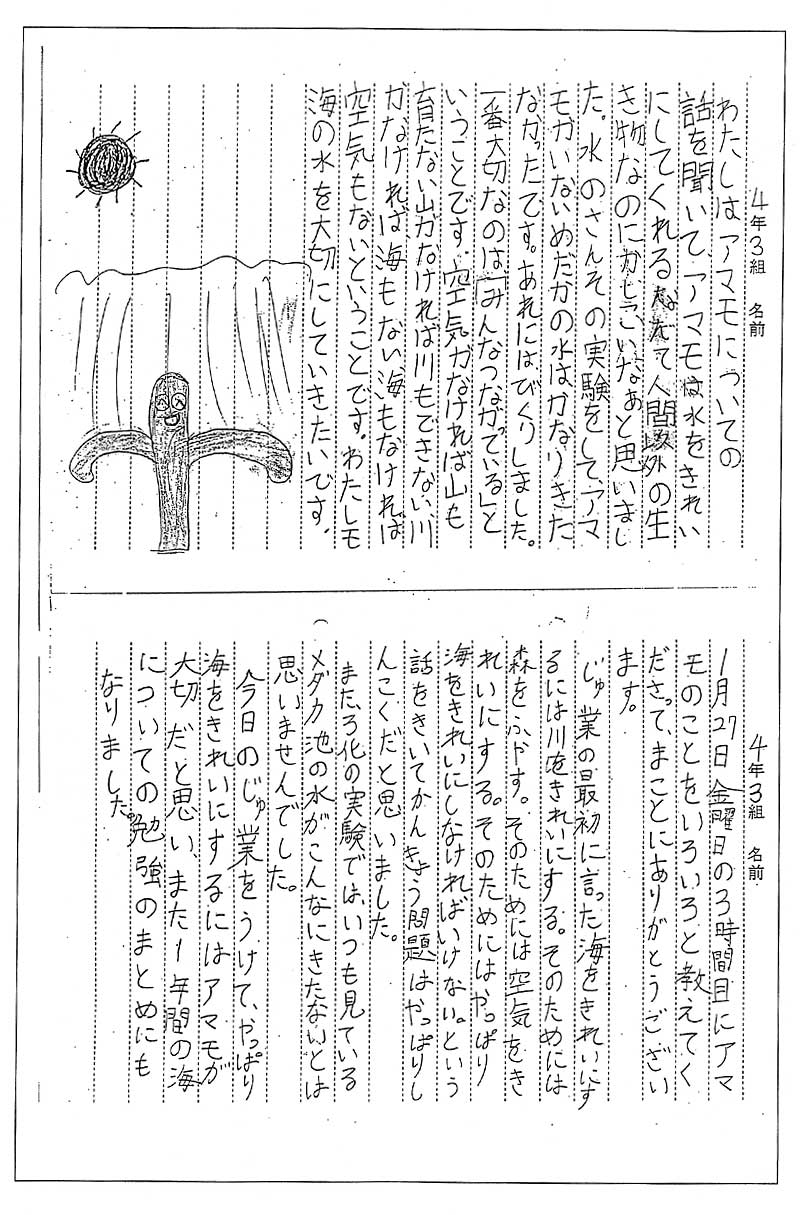 4年3組 名前
わたしはアマモについての
話を聞いて、アマモは水をきれい
にしてくれるなんて人間以外の生
き物なのにかしこいなぁと思いまし
た。水のさんその実験をして、アマ
モがいないめだかの水はかなりきた
なかったです。あれにはびくりしました。
一番大切なのは「みんなつながっている」と
いうことです。空気がなければ山も
育たない山がなければ川もできない、川
がなければ海もない海もなければ
空気もないということです。わたしも
海の水を大切にしていきたいです。
4年3組 名前
1月27日金曜日の3時間目にアマ
モのことをいろいろと教えてく
ださって、まことにありがとうござい
ます。
じゅ業の最初に言った海をきれいにす
るには川をきれいにする。そのためには
森をふやす。そのためには空気をき
れいにする。そのためにはやっぱり
海をきれいにしなければいけない。という
話をきいてかんきょう問題はやっぱりし
んこくだと思いました。
また、ろ化の実験では、いつも見ている
メダカ池の水がこんなにきたないとは
思いませんでした。
今日のじゅ業をうけて、やっぱり
海をきれいにするにはアマモが
大切だと思い、また1年間の海
についての勉強のまとめにも
なりました。